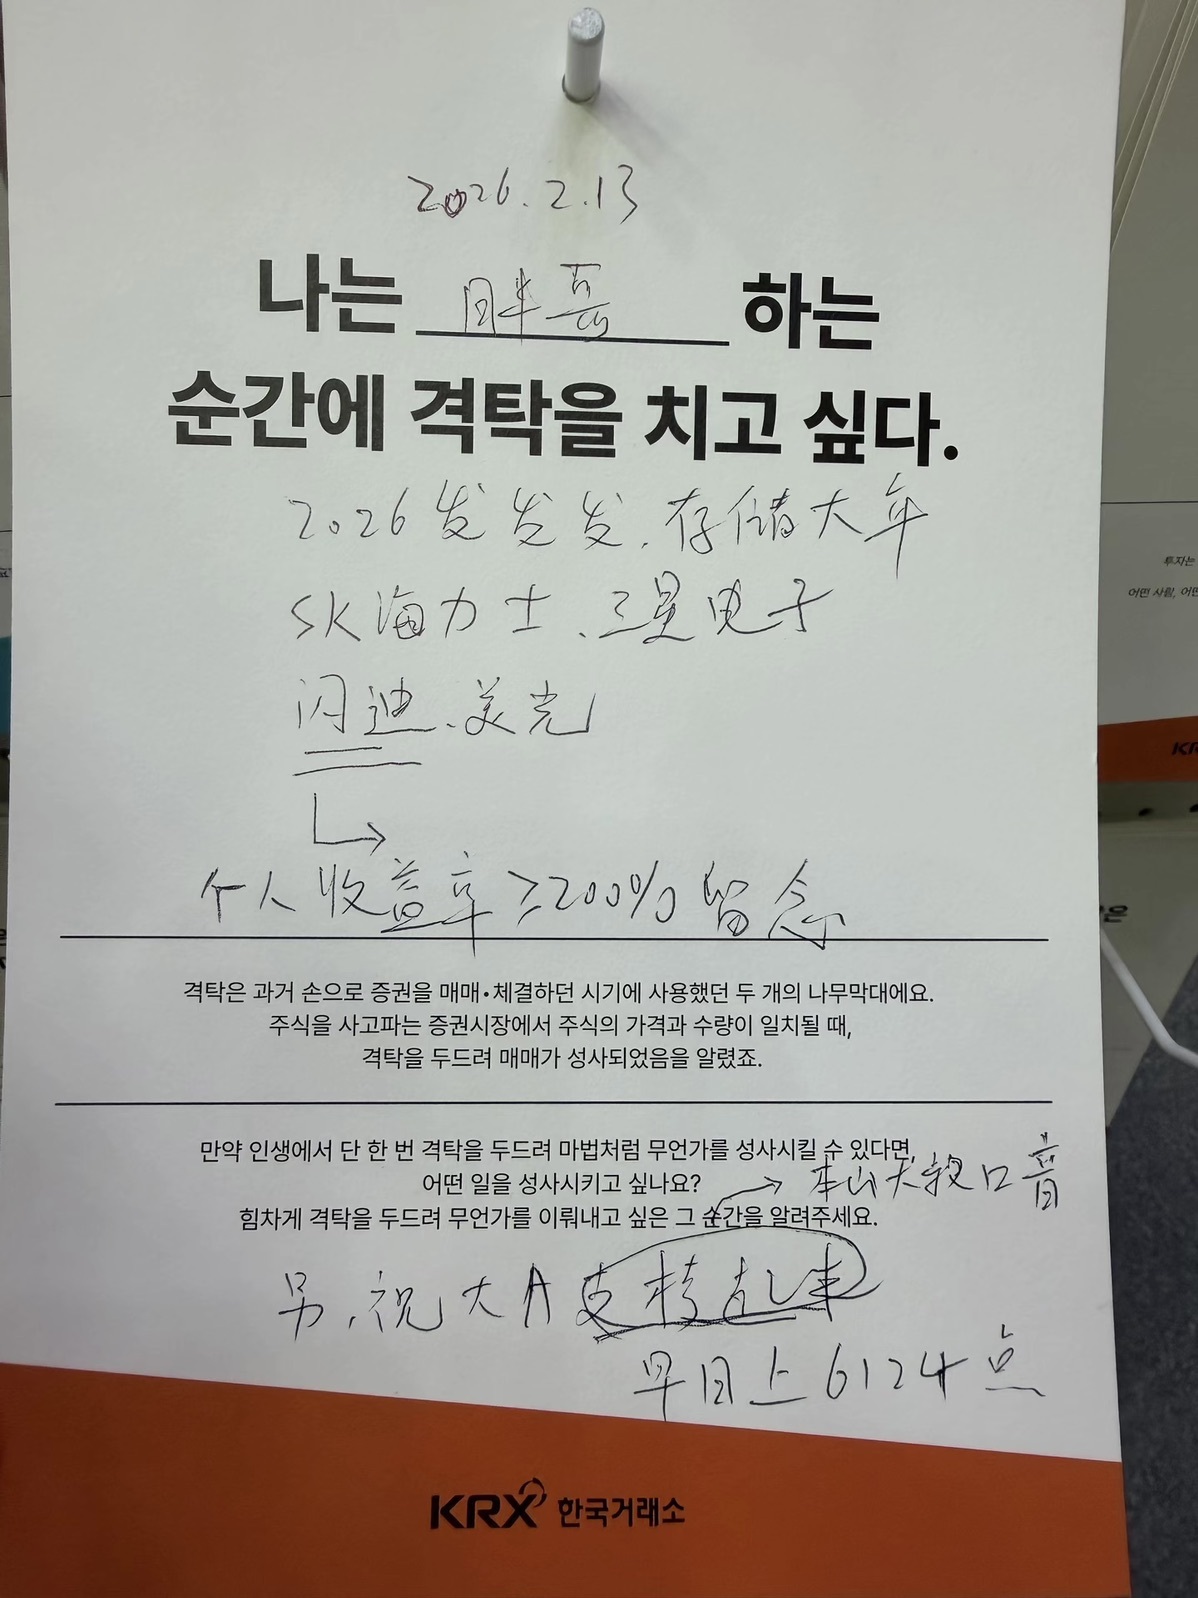 2026.2.13
나는 胖岳 하는
순간에 격탁을 치고 싶다.
2026发发发.存储大年
SK海力士、三星电子
闪迪、美光
个人收益率≥200%留念
격탁은 과거 손으로 증권을 매매•체결하던 시기에 사용했던 두 개의 나무막대에요.
주식을 사고파는 증권시장에서 주식의 가격과 수량이 일치될 때,
격탁을 두드려 매매가 성사되었음을 알렸죠.
만약 인생에서 단 한 번 격탁을 두드려 마법처럼 무언가를 성사시킬 수 있다면,
어떤 일을 성사시키고 싶나요?
→本山大叔口音
힘차게 격탁을 두드려 무언가를 이뤄내고 싶은 그 순간을 알려주세요.
另、祝大A支棱起来
早日上6124点
KRX 한국거래소
투자는
어떤 사람, 어떤
KR